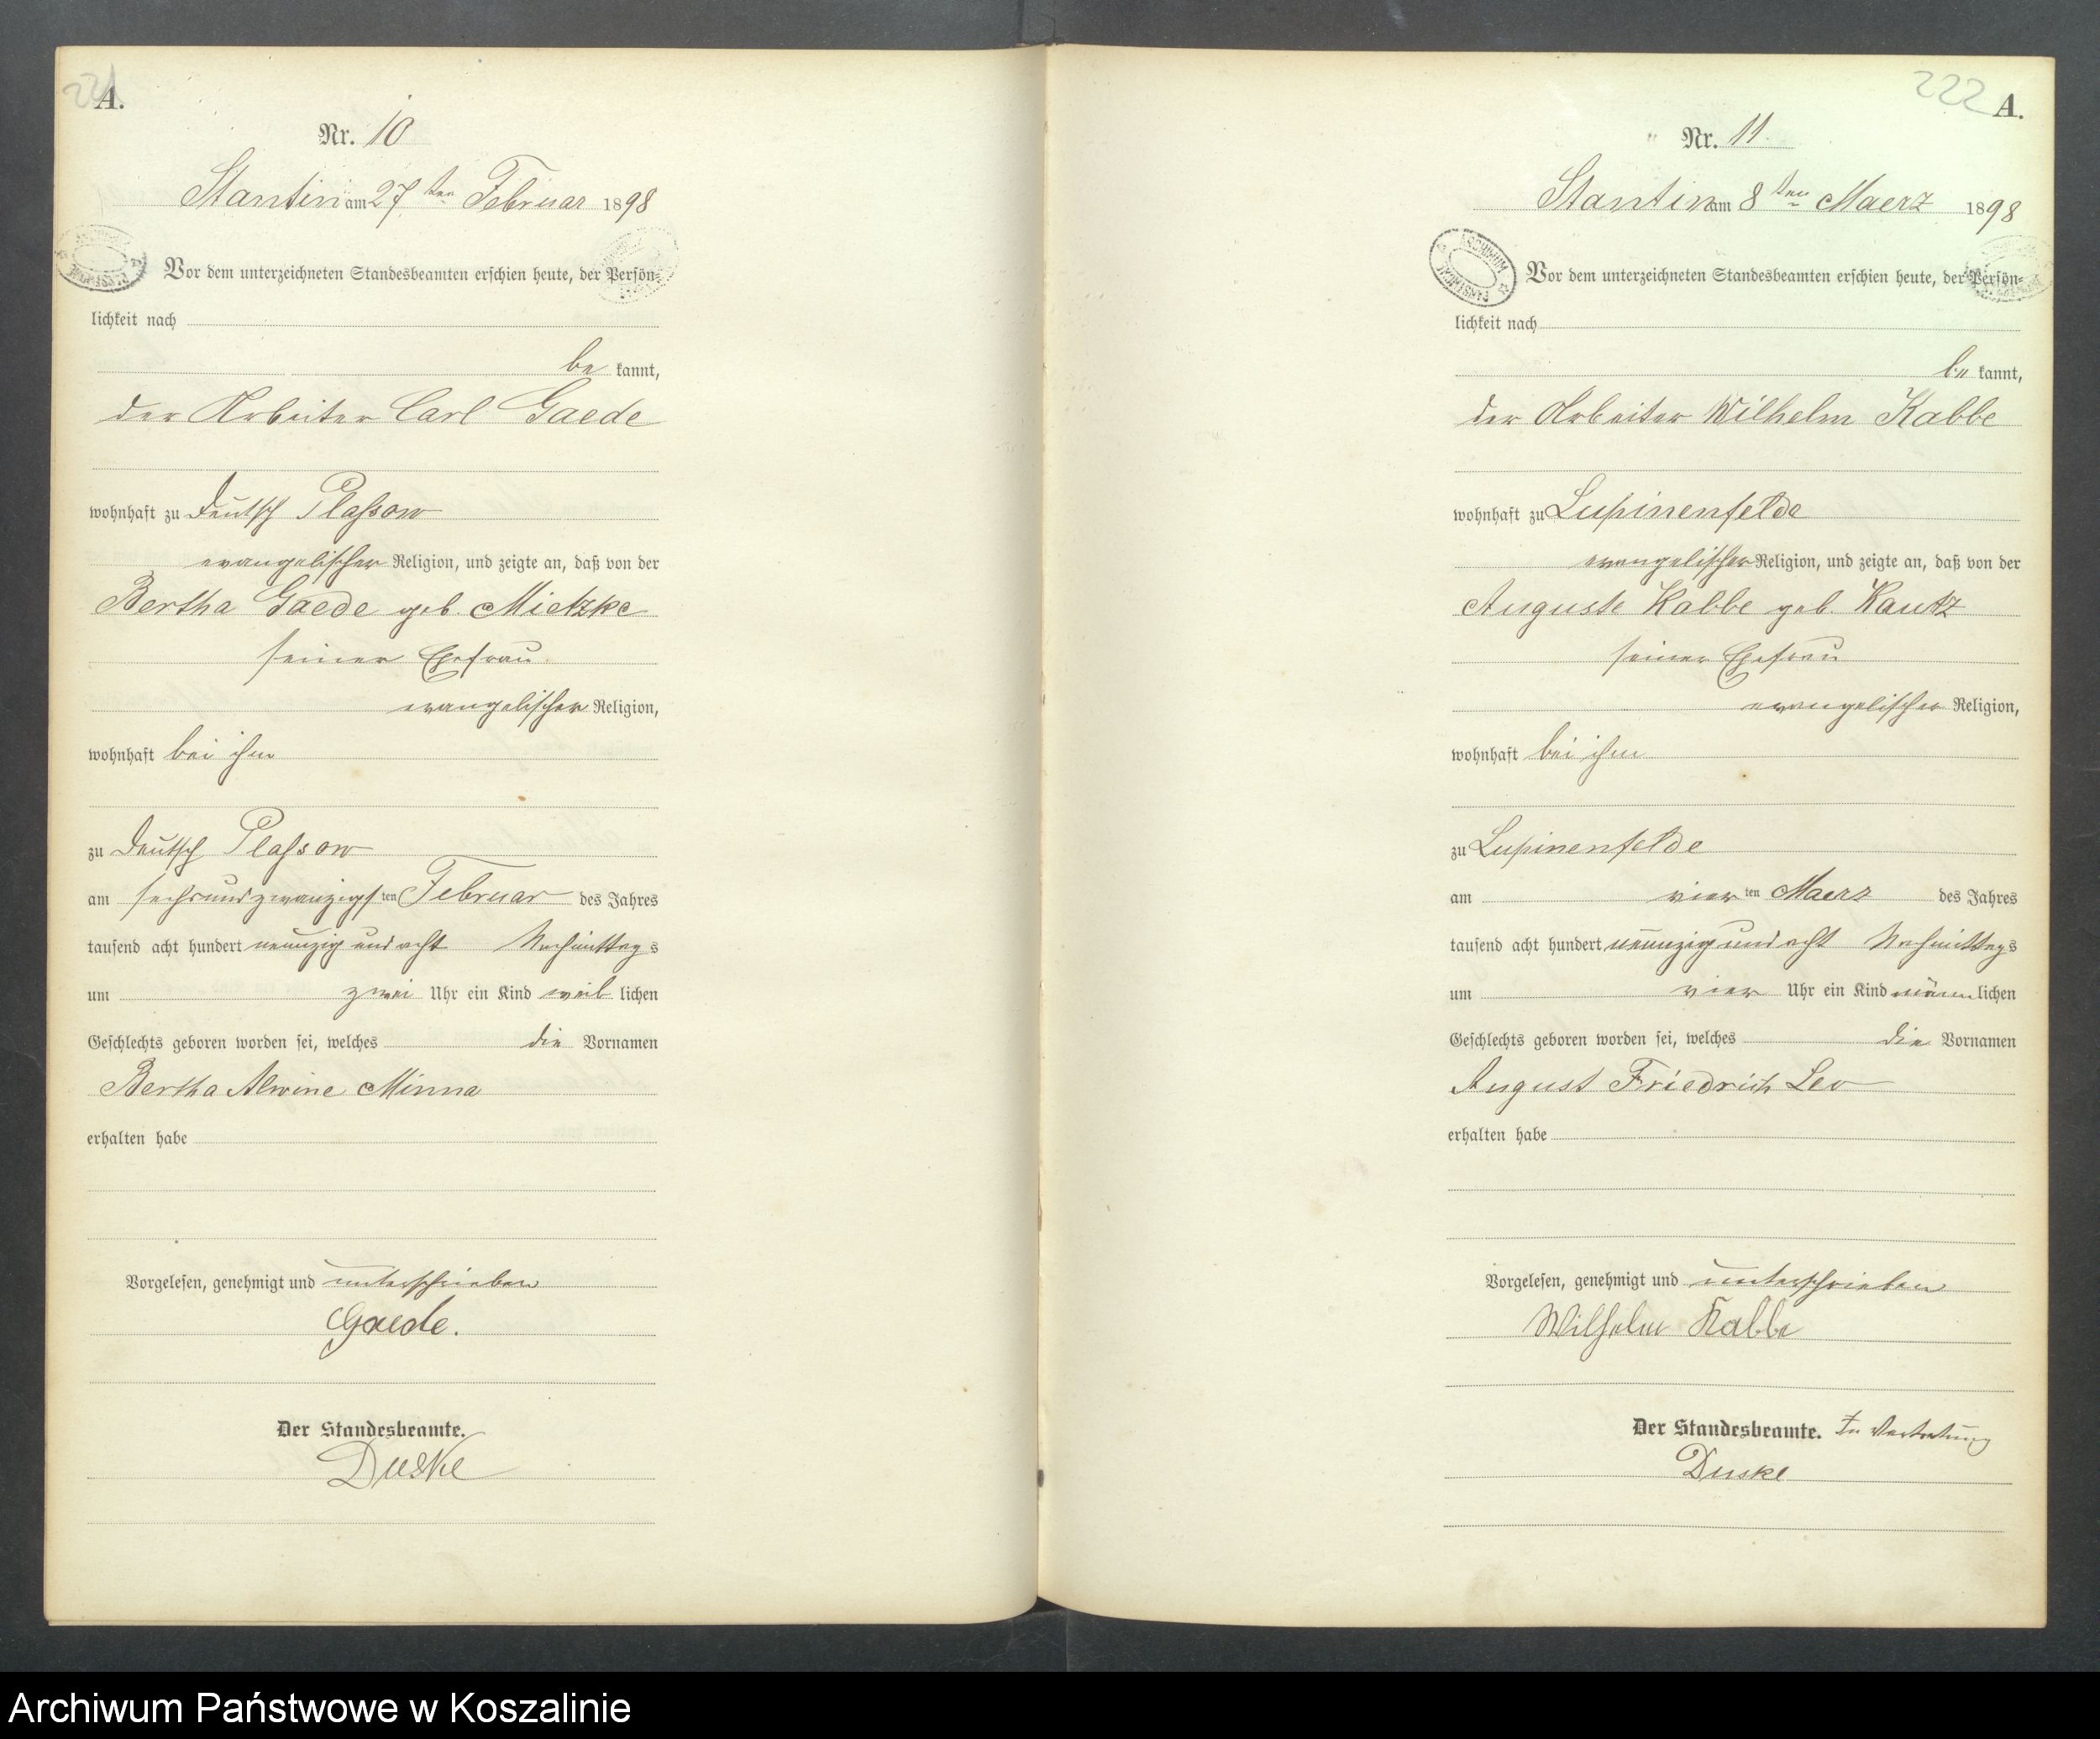 221
A.
Nr. 10
Stantin am 27ten Februar 1898
Vor dem unterzeichneten Standesbeamten erschien heute, der Persön-
lichkeit nach
be kannt,
der Arbeiter Carl Gaede
wohnhaft zu Deutsch Plassow
evangelischer Religion, und zeigte an, daß von der
Bertha Gaede geb. Mietzke
seiner Ehefrau
evangelischer Religion,
wohnhaft bei ihm
zu Deutsch Plassow
am sechsundzwanzigsten Februar des Jahres
tausend acht hundert neunzig und acht Nachmittags
um zwei Uhr ein Kind weib lichen
Geschlechts geboren worden sei, welches die Vornamen
Bertha Alwine Minna
erhalten habe
Vorgelesen, genehmigt und unterschrieben
Gaede.
Der Standesbeamte.
Duske
222
A.
Nr. 11
Stantin am 8ten Maerz 1898
ARCHIWUM PAŃSTWOWE
Vor dem unterzeichneten Standesbeamten erschien heute, der Persön-
lichkeit nach
be kannt,
der Arbeiter Wilhelm Kabbe
wohnhaft zu Lupinenfelde
evangelischer Religion, und zeigte an, daß von der
Auguste Kabbe geb. Kautz
seiner Ehefrau
evangelischer Religion,
wohnhaft bei ihm
zu Lupinenfelde
am vierten Maerz des Jahres
tausend acht hundert neunzig und acht Nachmittags
um vier Uhr ein Kind männlichen
Geschlechts geboren worden sei, welches die Vornamen
August Friedrich Leo
erhalten habe
Vorgelesen, genehmigt und unterschrieben
Wilhelm Kabbe
Der Standesbeamte. In Vertretung
Duske
Archiwum Państwowe w Koszalinie